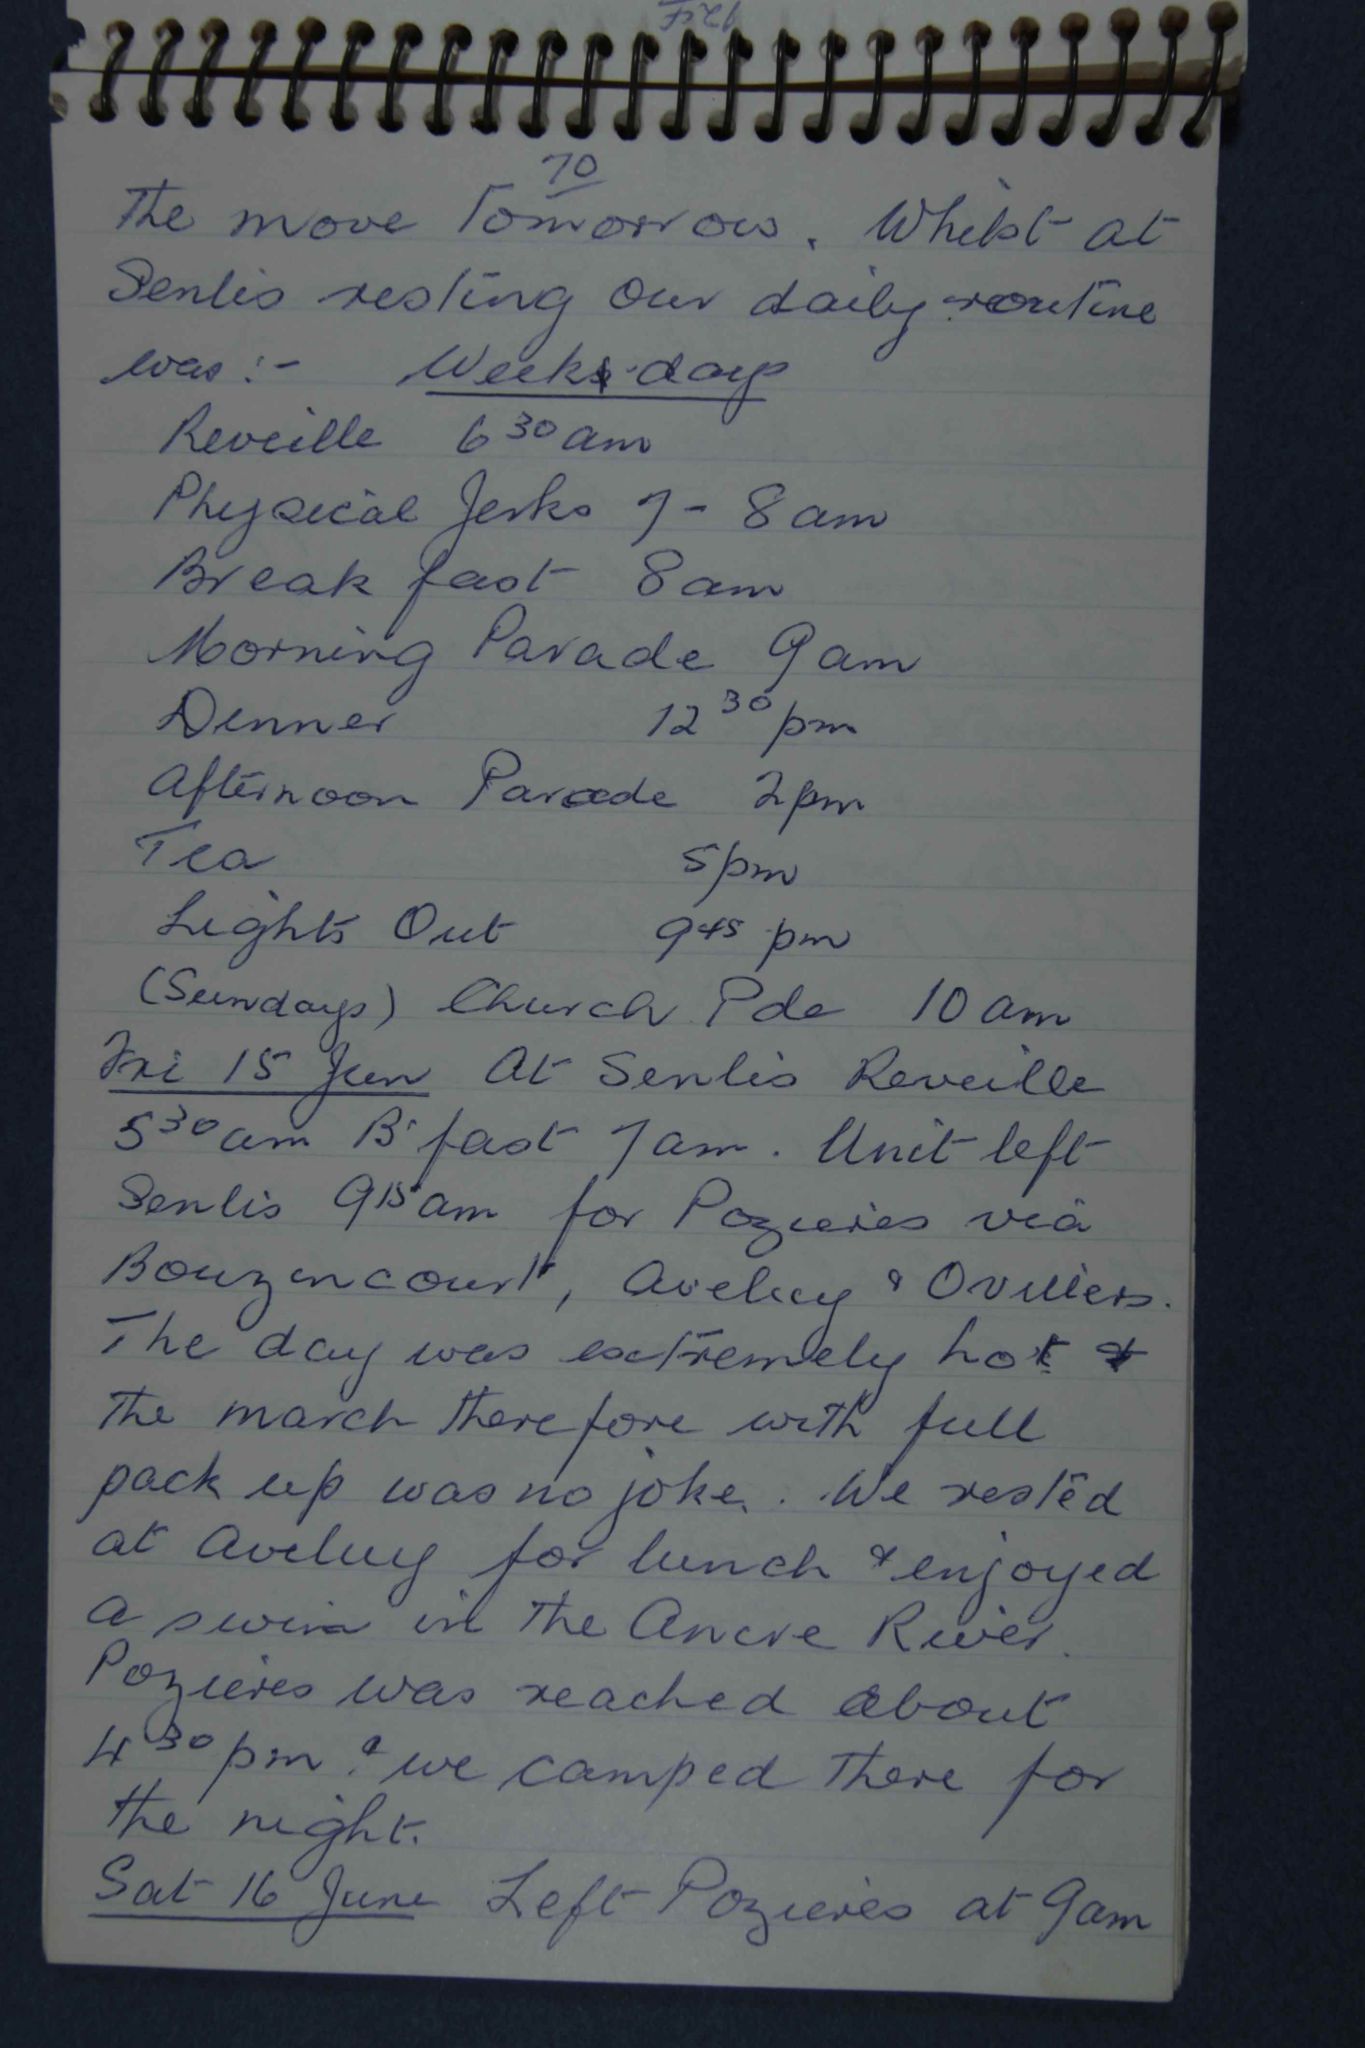 70
The move Tomorrow. Whilst at
Senlis resting our daily routine
was:- Week days
Reveille 6 30 am
Physical Jerks 7 - 8 am
Break fast 8 am
Morning Parade 9 am
Dinner 12 30 pm
Afternoon Parade 2 pm
Tea 5 pm
Lights Out 9 45 pm
(Sundays) Church Pde 10 am
Fri 15 Jun At Senlis Reveille
5 30 am B'fast 7 am. Unit left
Senlis 9 15 am for Pozieres via
Bouzencourt, Aveluy & Ovillers.
The day was extremely hot &
the march therefore with full
pack up was no joke. We rested
at Aveluy for lunch & enjoyed
a swim in the Ancre River.
Pozieres was reached about
4 30 pm & we camped there for
the night.
Sat 16 June Left Pozieres at 9 am